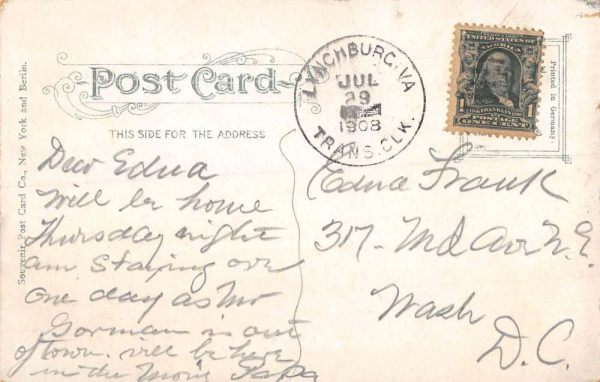 Souvenir Post Card Co., New York and Berlin.
Post Card
THIS SIDE FOR THE ADDRESS
LYNCHBURG, VA
JUL
29
1908
TRANS. CLK.
UNITED STATES OF AMERICA
FRANKLIN
1 1
POSTAGE
ONE CENT
Printed in Germany
Dear Edna
Will be home
Thursday night
am staying over
one day as Mr
Gorman is out
of town. will be here
in the morn'g Papa
Edna Frank
317- Md Ave N.E.
Wash
D.C.